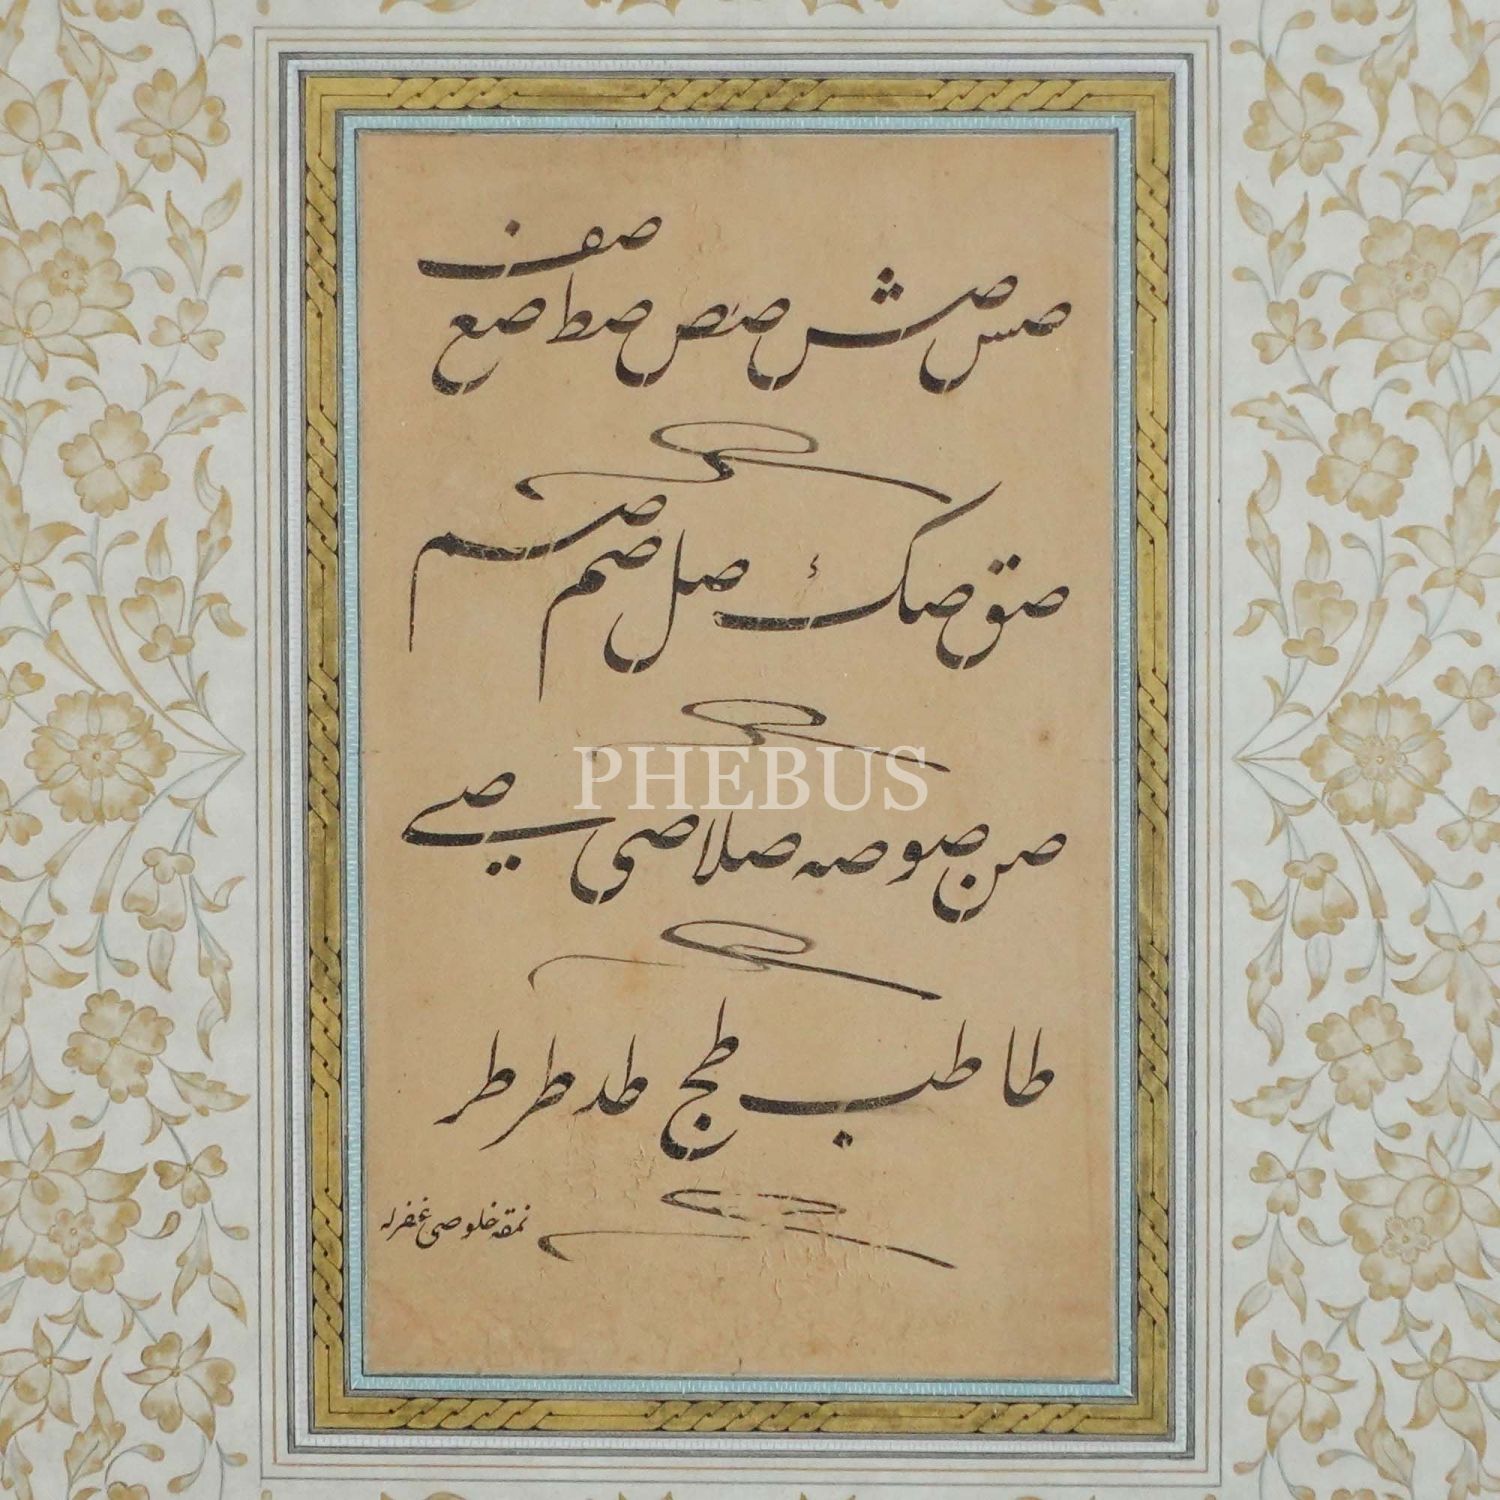 صس صش صص صط صع صف
صق صک صل صم صم
PHEBUS
صن صو صه صلا صی صے
طا طب طج طد طر طر
نمقه خلوصی غفرله